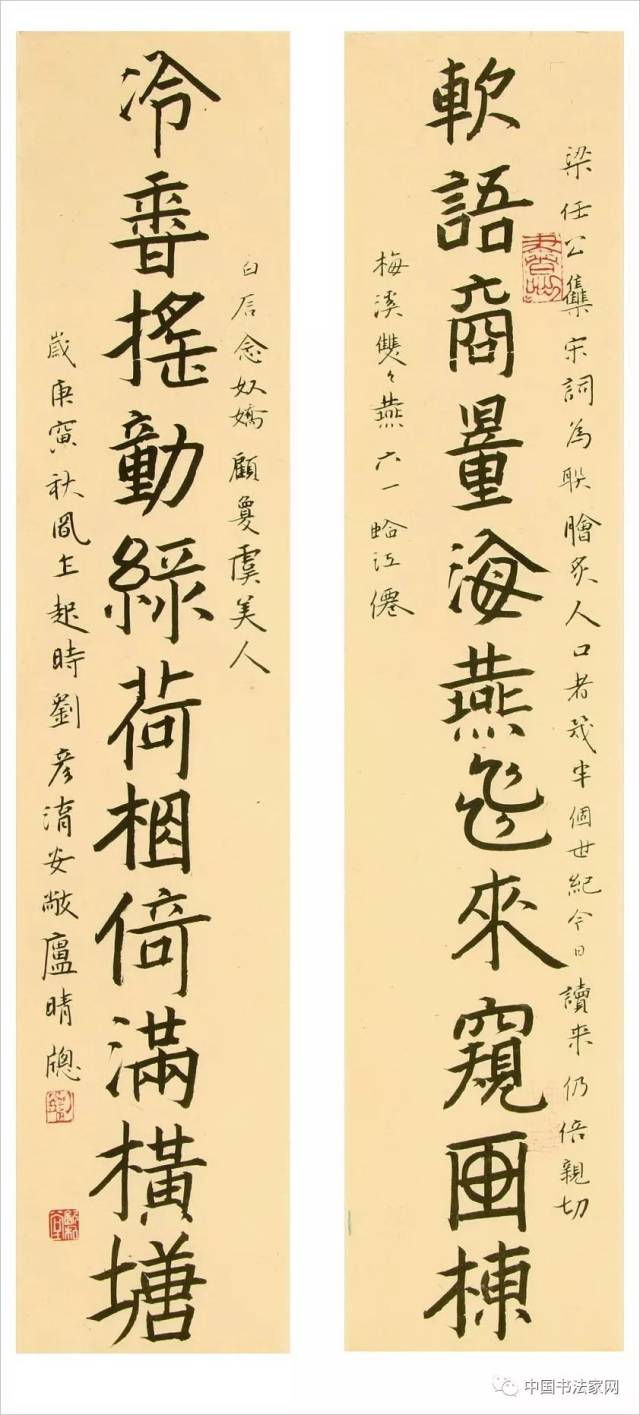 梁任公集宋詞為聯膾炙人口者幾半個世紀今日讀來仍倍親切
軟語商量海燕飛來窺画棟
梅溪雙々燕六一江僊
白石念奴嬌顧敻虞美人
冷香搖動綠荷相倚滿橫塘
歲庚寅秋風乍起時劉彥安敞廬晴牕
中国书法家网